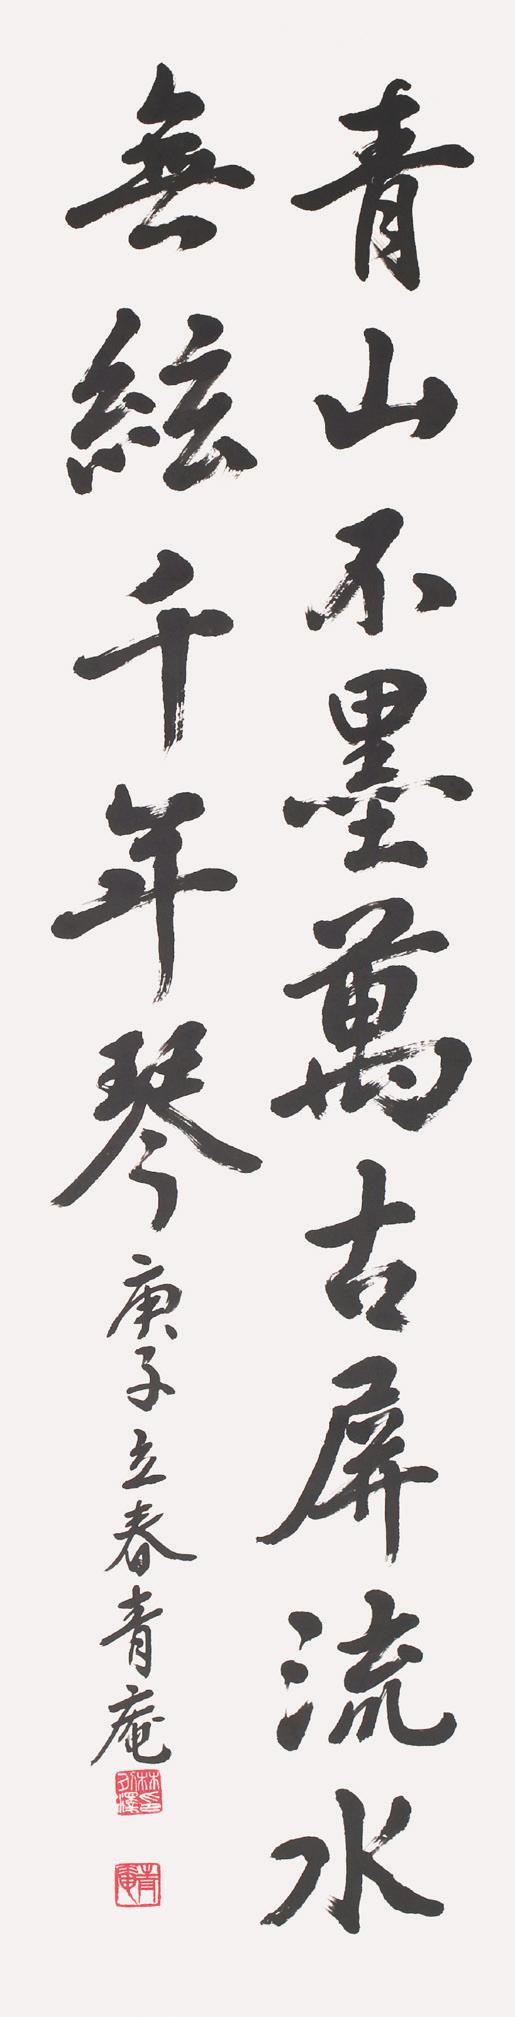 青山不墨萬古屏流水
無絃千年琴庚子立春青庵
青庵